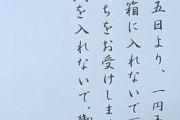 五日より、一円玉
箱に入れないで下
ちをお受けしま
を入れないで、御